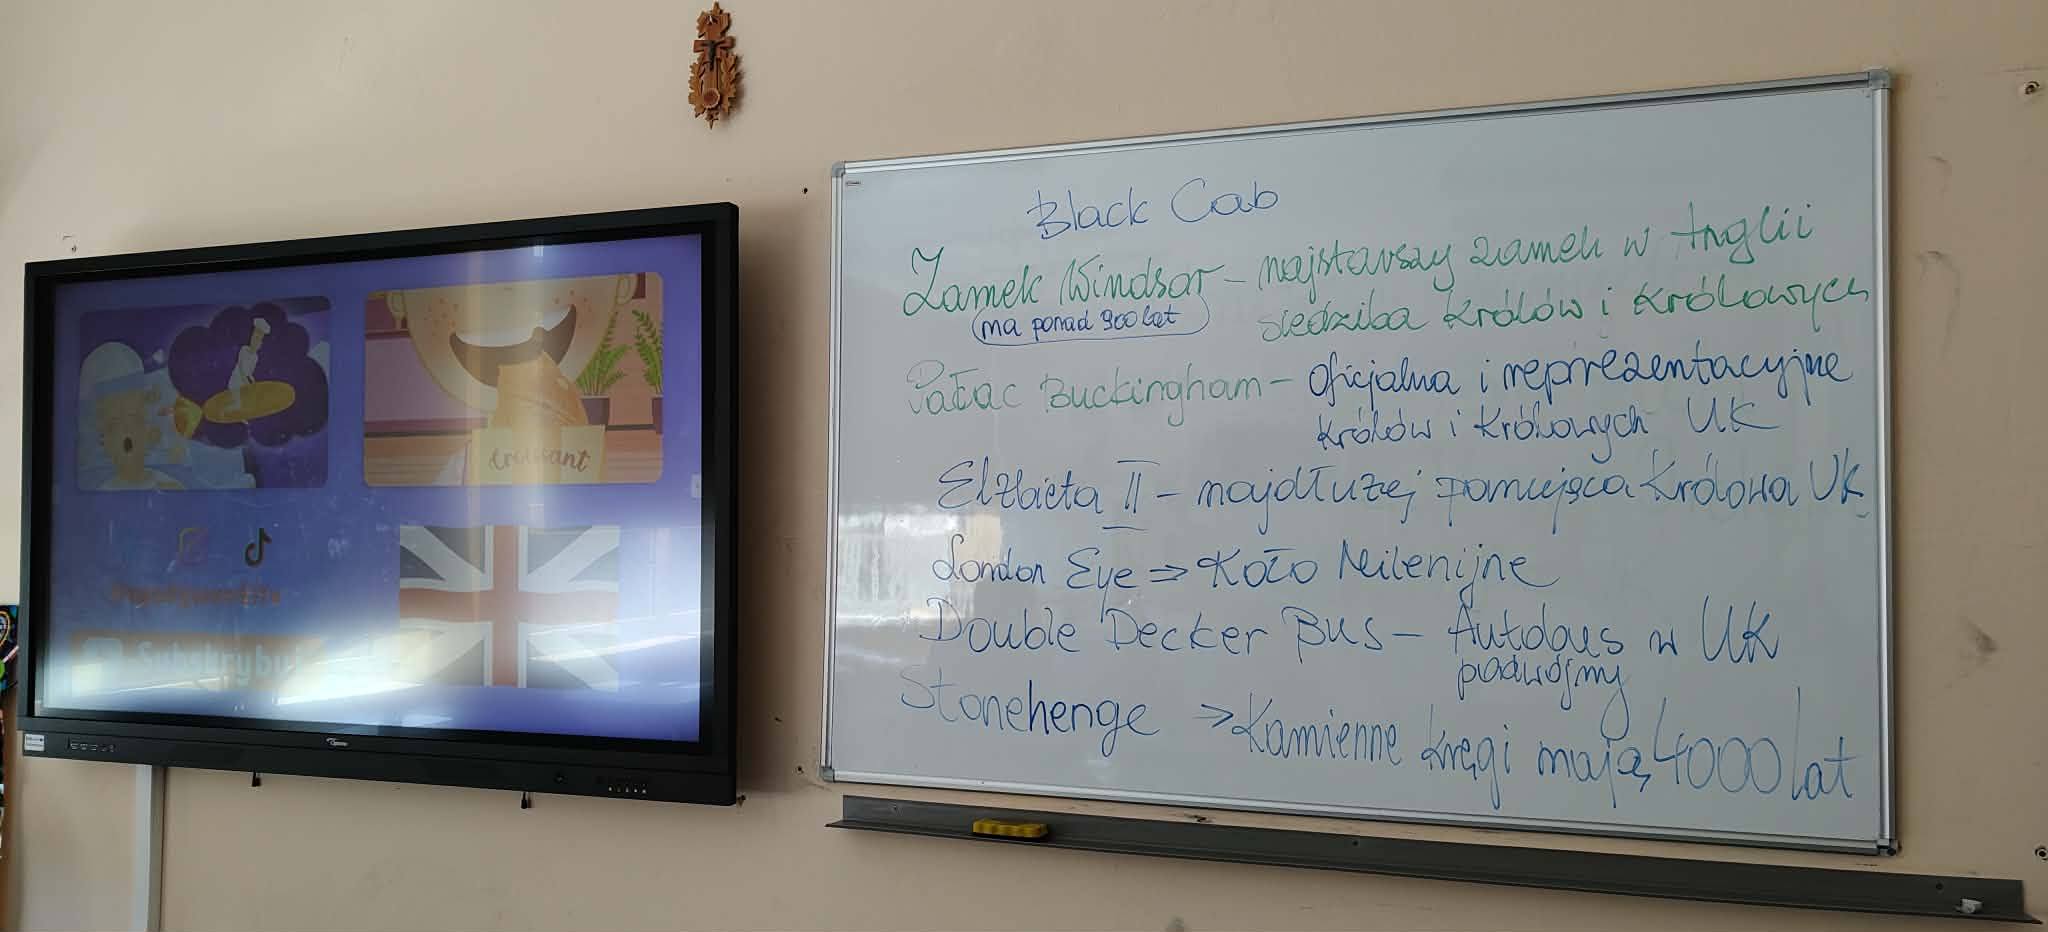 croissant
Subskrybuj
Black Cab
Zamek Windsor - najstarszy zamek w Anglii
ma ponad 900 lat siedziba królów i królowych
Pałac Buckingham - oficjalna i reprezentacyjne
królów i królowych UK
Elżbieta II - najdłużej panująca Królowa UK
London Eye ⇒ Koło Milenijne
Double Decker Bus - Autobus w UK
podwójny
Stonehenge → Kamienne kręgi mają 4000 lat